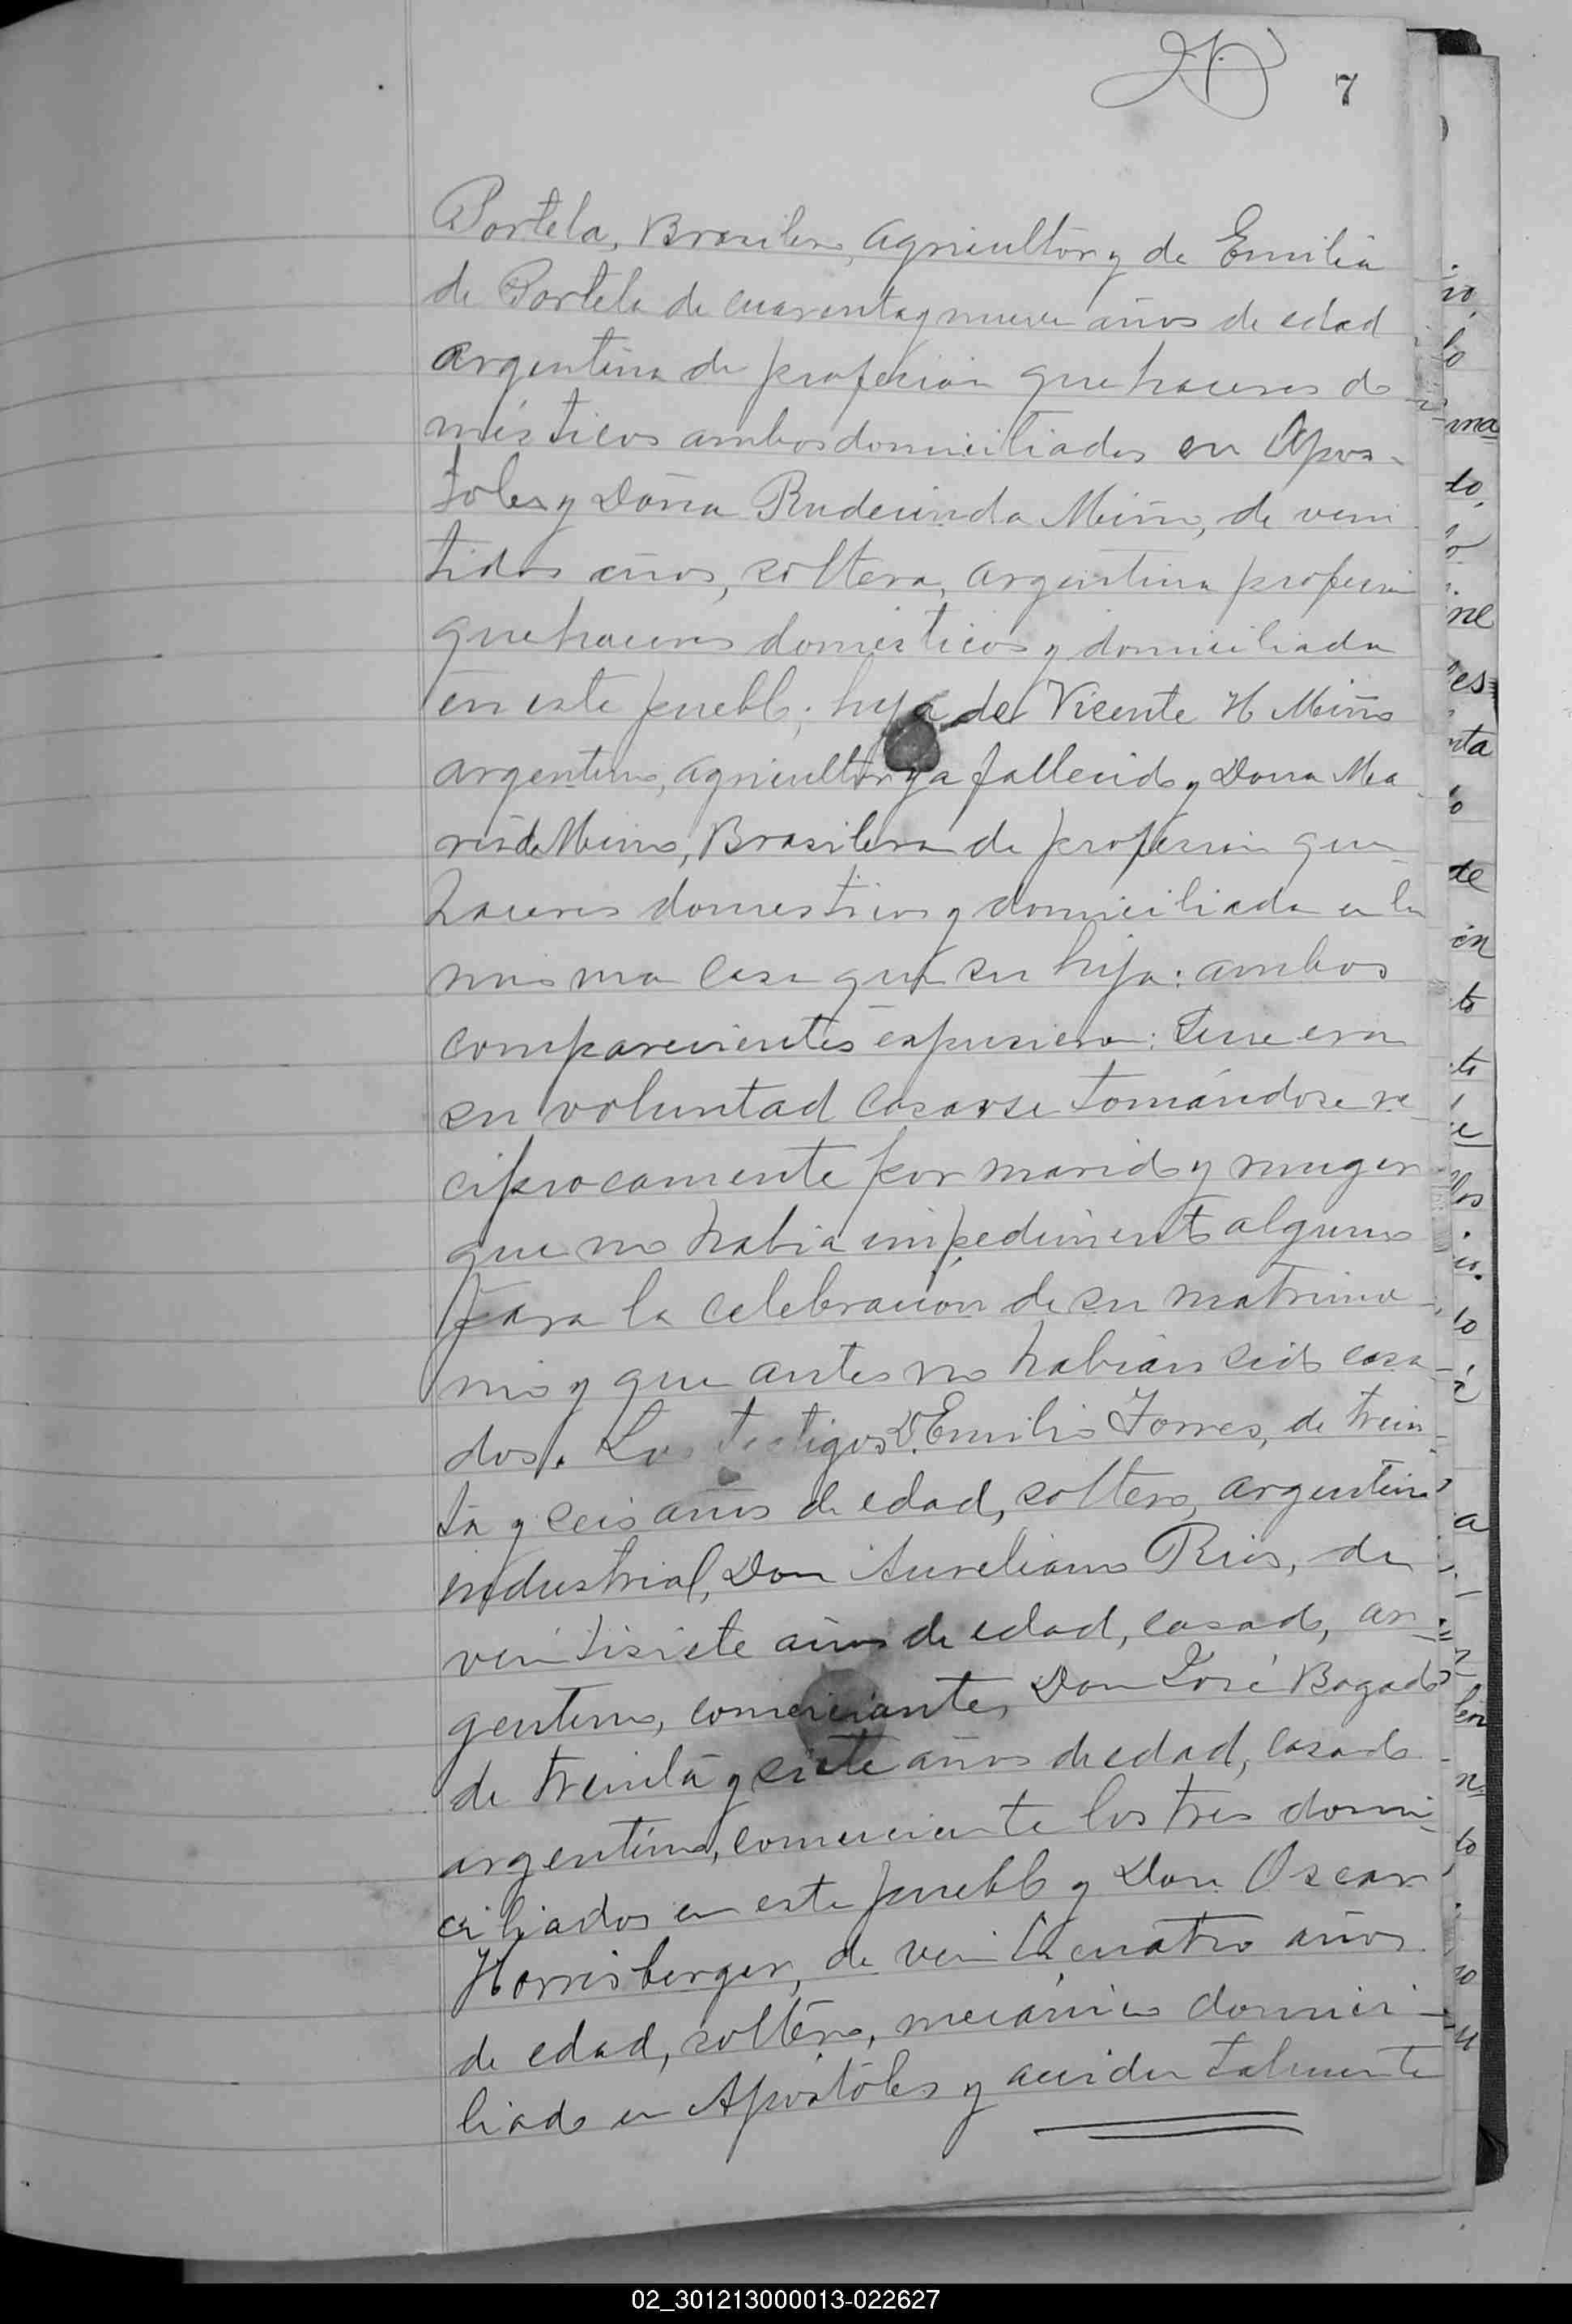 7
Portela, Brasilero, agricultor y de Emilia
de Portela de cuarenta y nueve años de edad
argentina de profesion quehaceres do
mésticos ambos domiciliados en Apos-
toles y Doña Rudecinda Miño, de vein
tidos años, soltera, argentina profesion
quehaceres domesticos y domiciliada
en este pueblo; hija de Vicente H Miño
argentino, agricultor ya fallecido y Dona Ma
ria de Mino, Brasilera de profesion que-
haceres domesticos y domiciliada en la
misma casa que su hija: ambos
comparecientes expusieron: Que era
su voluntad casarse tomándose re-
ciprocamente por marido y muger
que no habia impedimento alguno
para la celebración de su matrimo-
nio y que antes no habian sido casa-
dos. Los testigos D. Emilio Torres, de trein-
ta y seis años de edad, soltero, argentino
industrial, Don Aureliano Rios, de
veintisiete años de edad, casado, ar-
gentino, comerciante, Don José Bogado
de treinta y siete años de edad, casado
argentino, comerciante los tres domi-
ciliados en este pueblo y Don Oscar
Horrisberger, de veinticuatro años
de edad, soltero, mecánico domici-
liado en Apostóles y accidentalmente
02_301213000013-022627